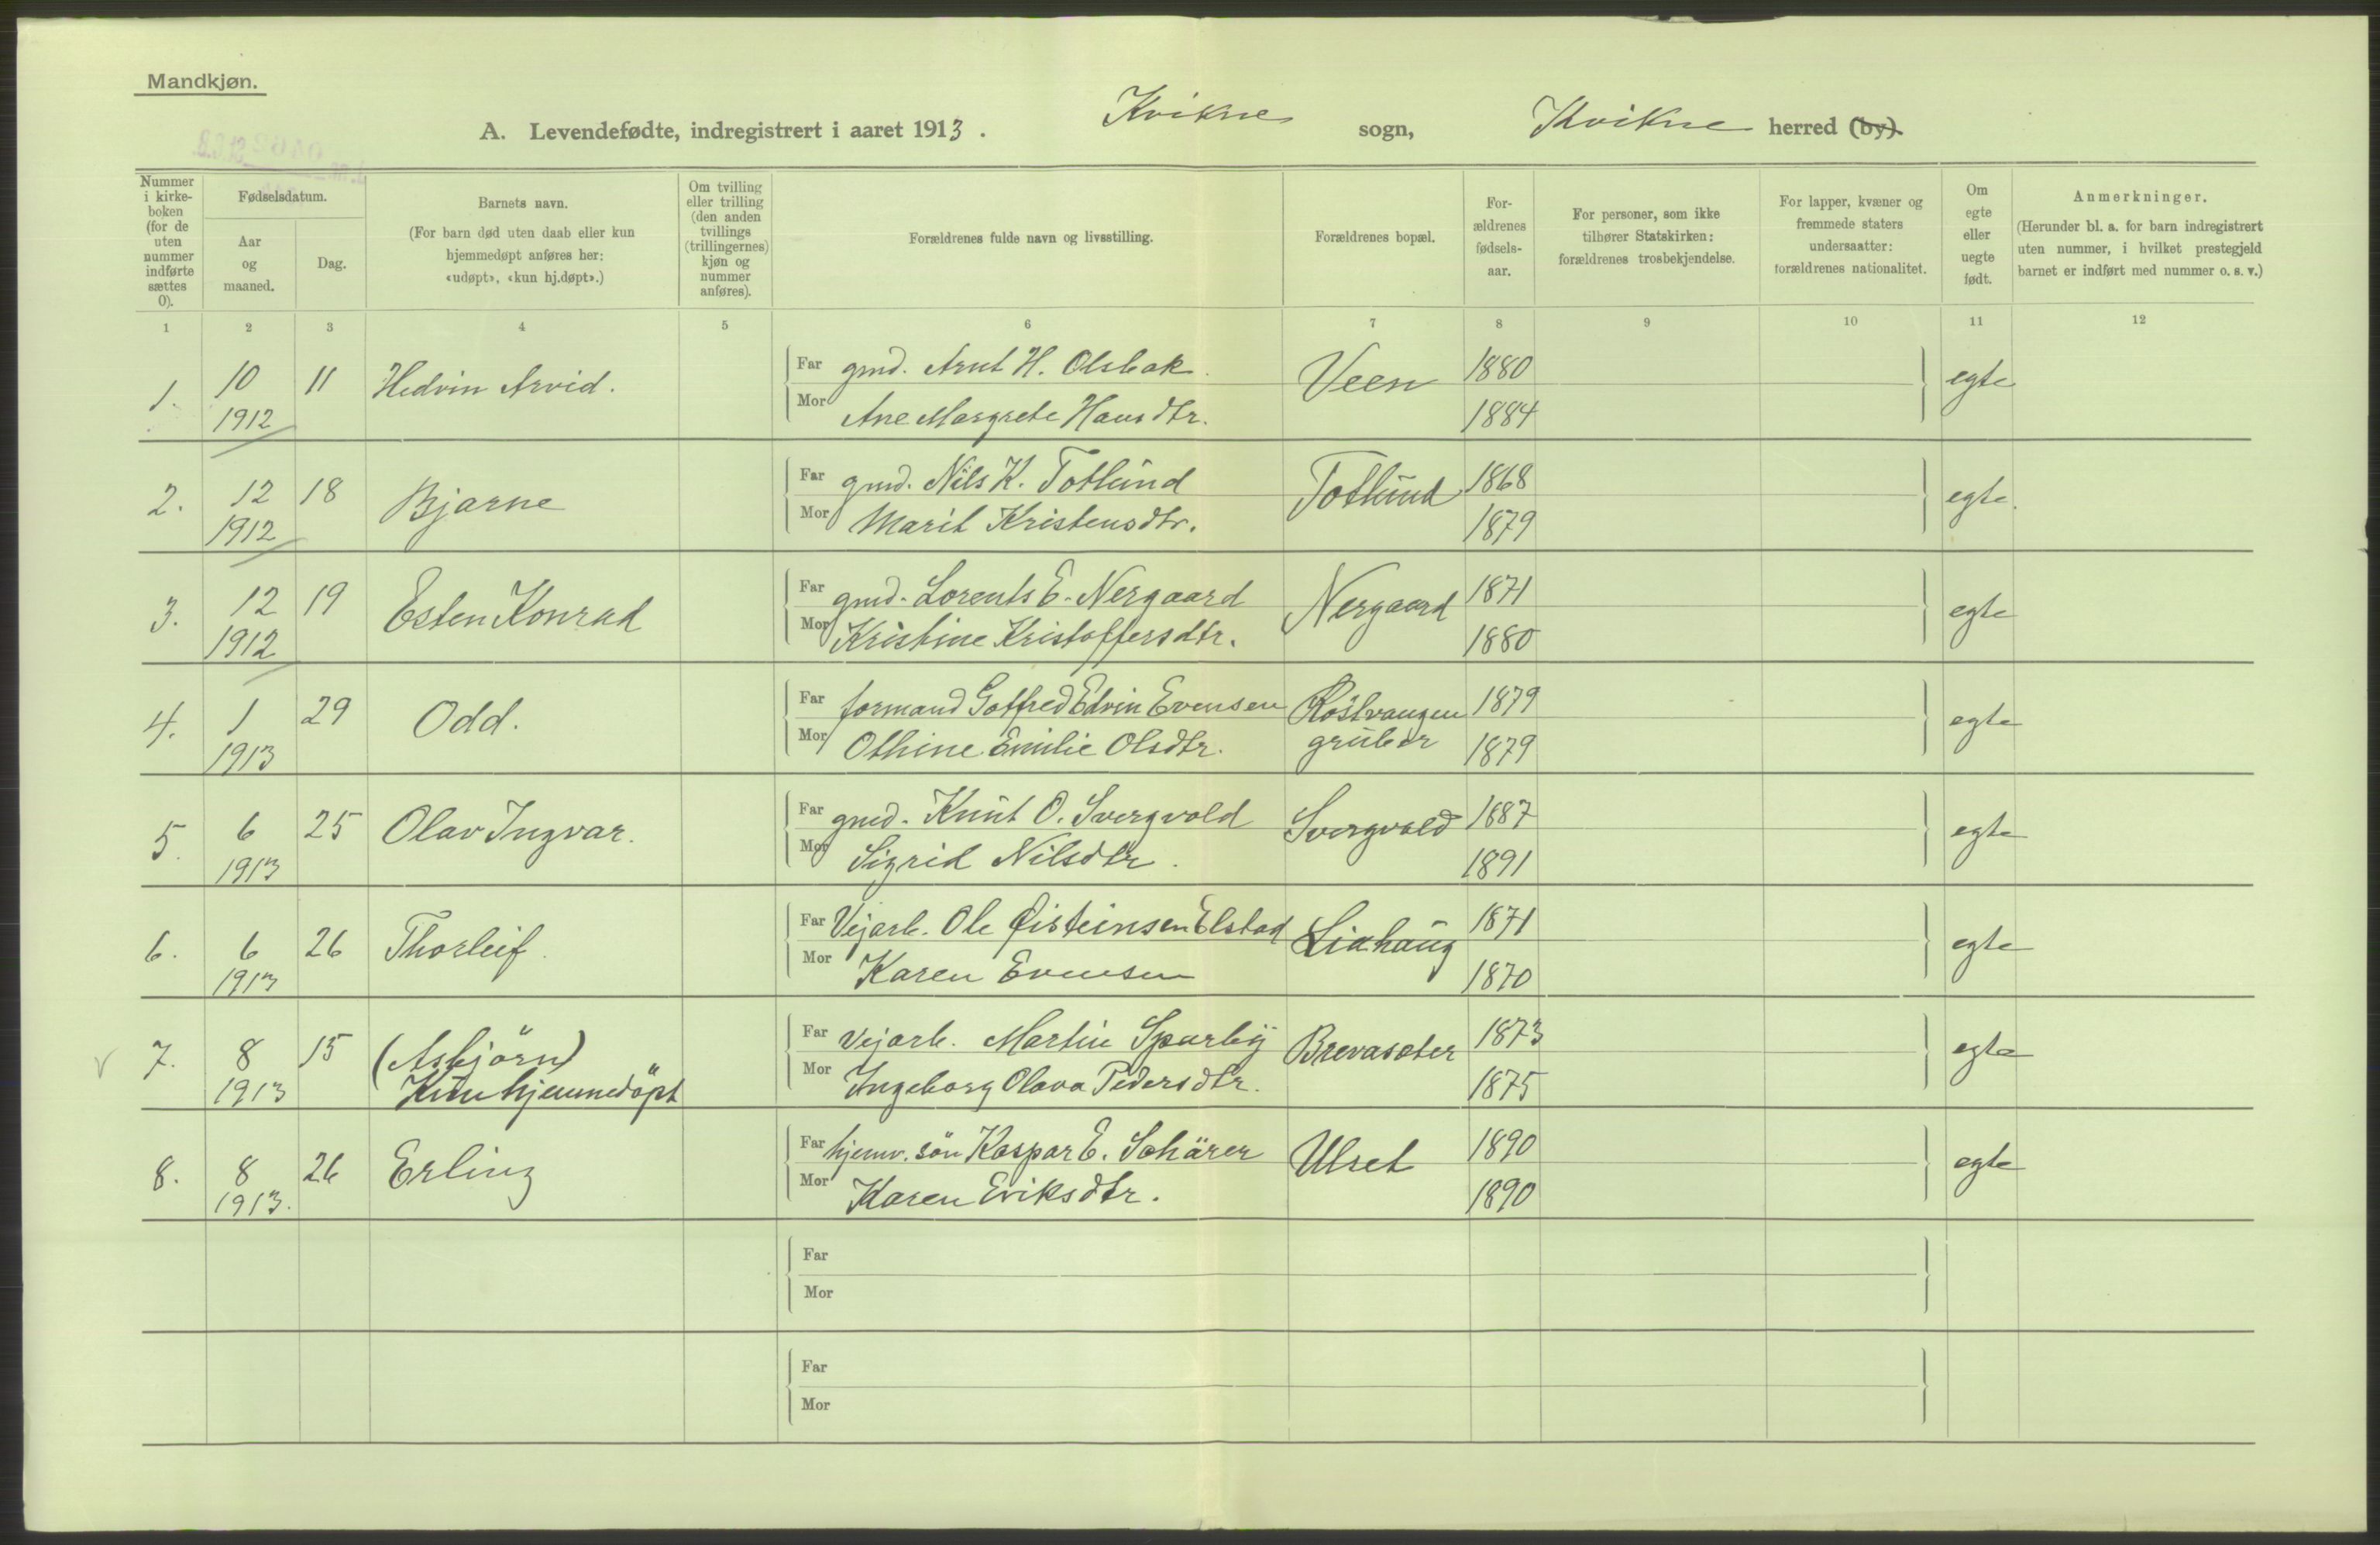 Mandkjøn.
A. Levendefødte, indregistrert i aaret 1913. Kvikne sogn, Kvikne herred (by).
Nummer i kirkeboken (for de uten nummer indførte sættes 0).
Fødselsdatum.
Aar og maaned.
Dag.
Barnets navn.
(For barn død uten daab eller kun hjemmedøpt anføres her: «udøpt», «kun hj.døpt».)
Om tvilling eller trilling (den anden tvillings (trillingernes) kjøn og nummer anføres).
Forældrenes fulde navn og livsstilling.
Forældrenes bopæl.
Forældrenes fødselsaar.
For personer, som ikke tilhører Statskirken: forældrenes trosbekjendelse.
For lapper, kvæner og fremmede staters undersaatter: forældrenes nationalitet.
Om egte eller uegte født.
Anmerkninger.
(Herunder bl. a. for barn indregistrert uten nummer, i hvilket prestegjeld barnet er indført med nummer o. s. v.)
1 2 3 4 5 6 7 8 9 10 11 12
1. 10 1912 11 Hedvin Arvid. Far gmd. Arnt H. Olsbak. Veen 1880 egte
Mor Ane Margrete Hansdtr. 1884
2. 12 1912 18 Bjarne Far gmd. Nils K. Totlund Totlund 1868 egte.
Mor Marit Kristensdtr. 1879
3. 12 1912 19 Esten Konrad Far gmd. Lorents E. Nergaard Nergaard 1871 egte
Mor Kristine Kristoffersdtr. 1880
4. 1 1913 29 Odd. Far formand Gotfred Edvin Evensen Röstvangen gruber 1879 egte
Mor Othine Emilie Olsdtr. 1879
5. 6 1913 25 Olav Ingvar. Far gmd. Knut O. Svergvold Svergvold 1887 egte
Mor Sigrid Nilsdtr. 1891
6. 6 1913 26 Thorleif. Far Vejarb. Ole Øisteinsen Elstad Liahaug 1871 egte
Mor Karen Evensen 1870
v 7. 8 1913 15 (Asbjörn) Kun hjemmedöpt Far Vejarb. Martin Sparby Brevasæter 1873 egte
Mor Ingeborg Olava Pedersdtr. 1875
8. 8 1913. 26 Erling Far hjemv. sön Kaspar E. Schärer Ulset 1890 egte
Mor Karen Eriksdtr. 1890
Far
Mor
Far
Mor